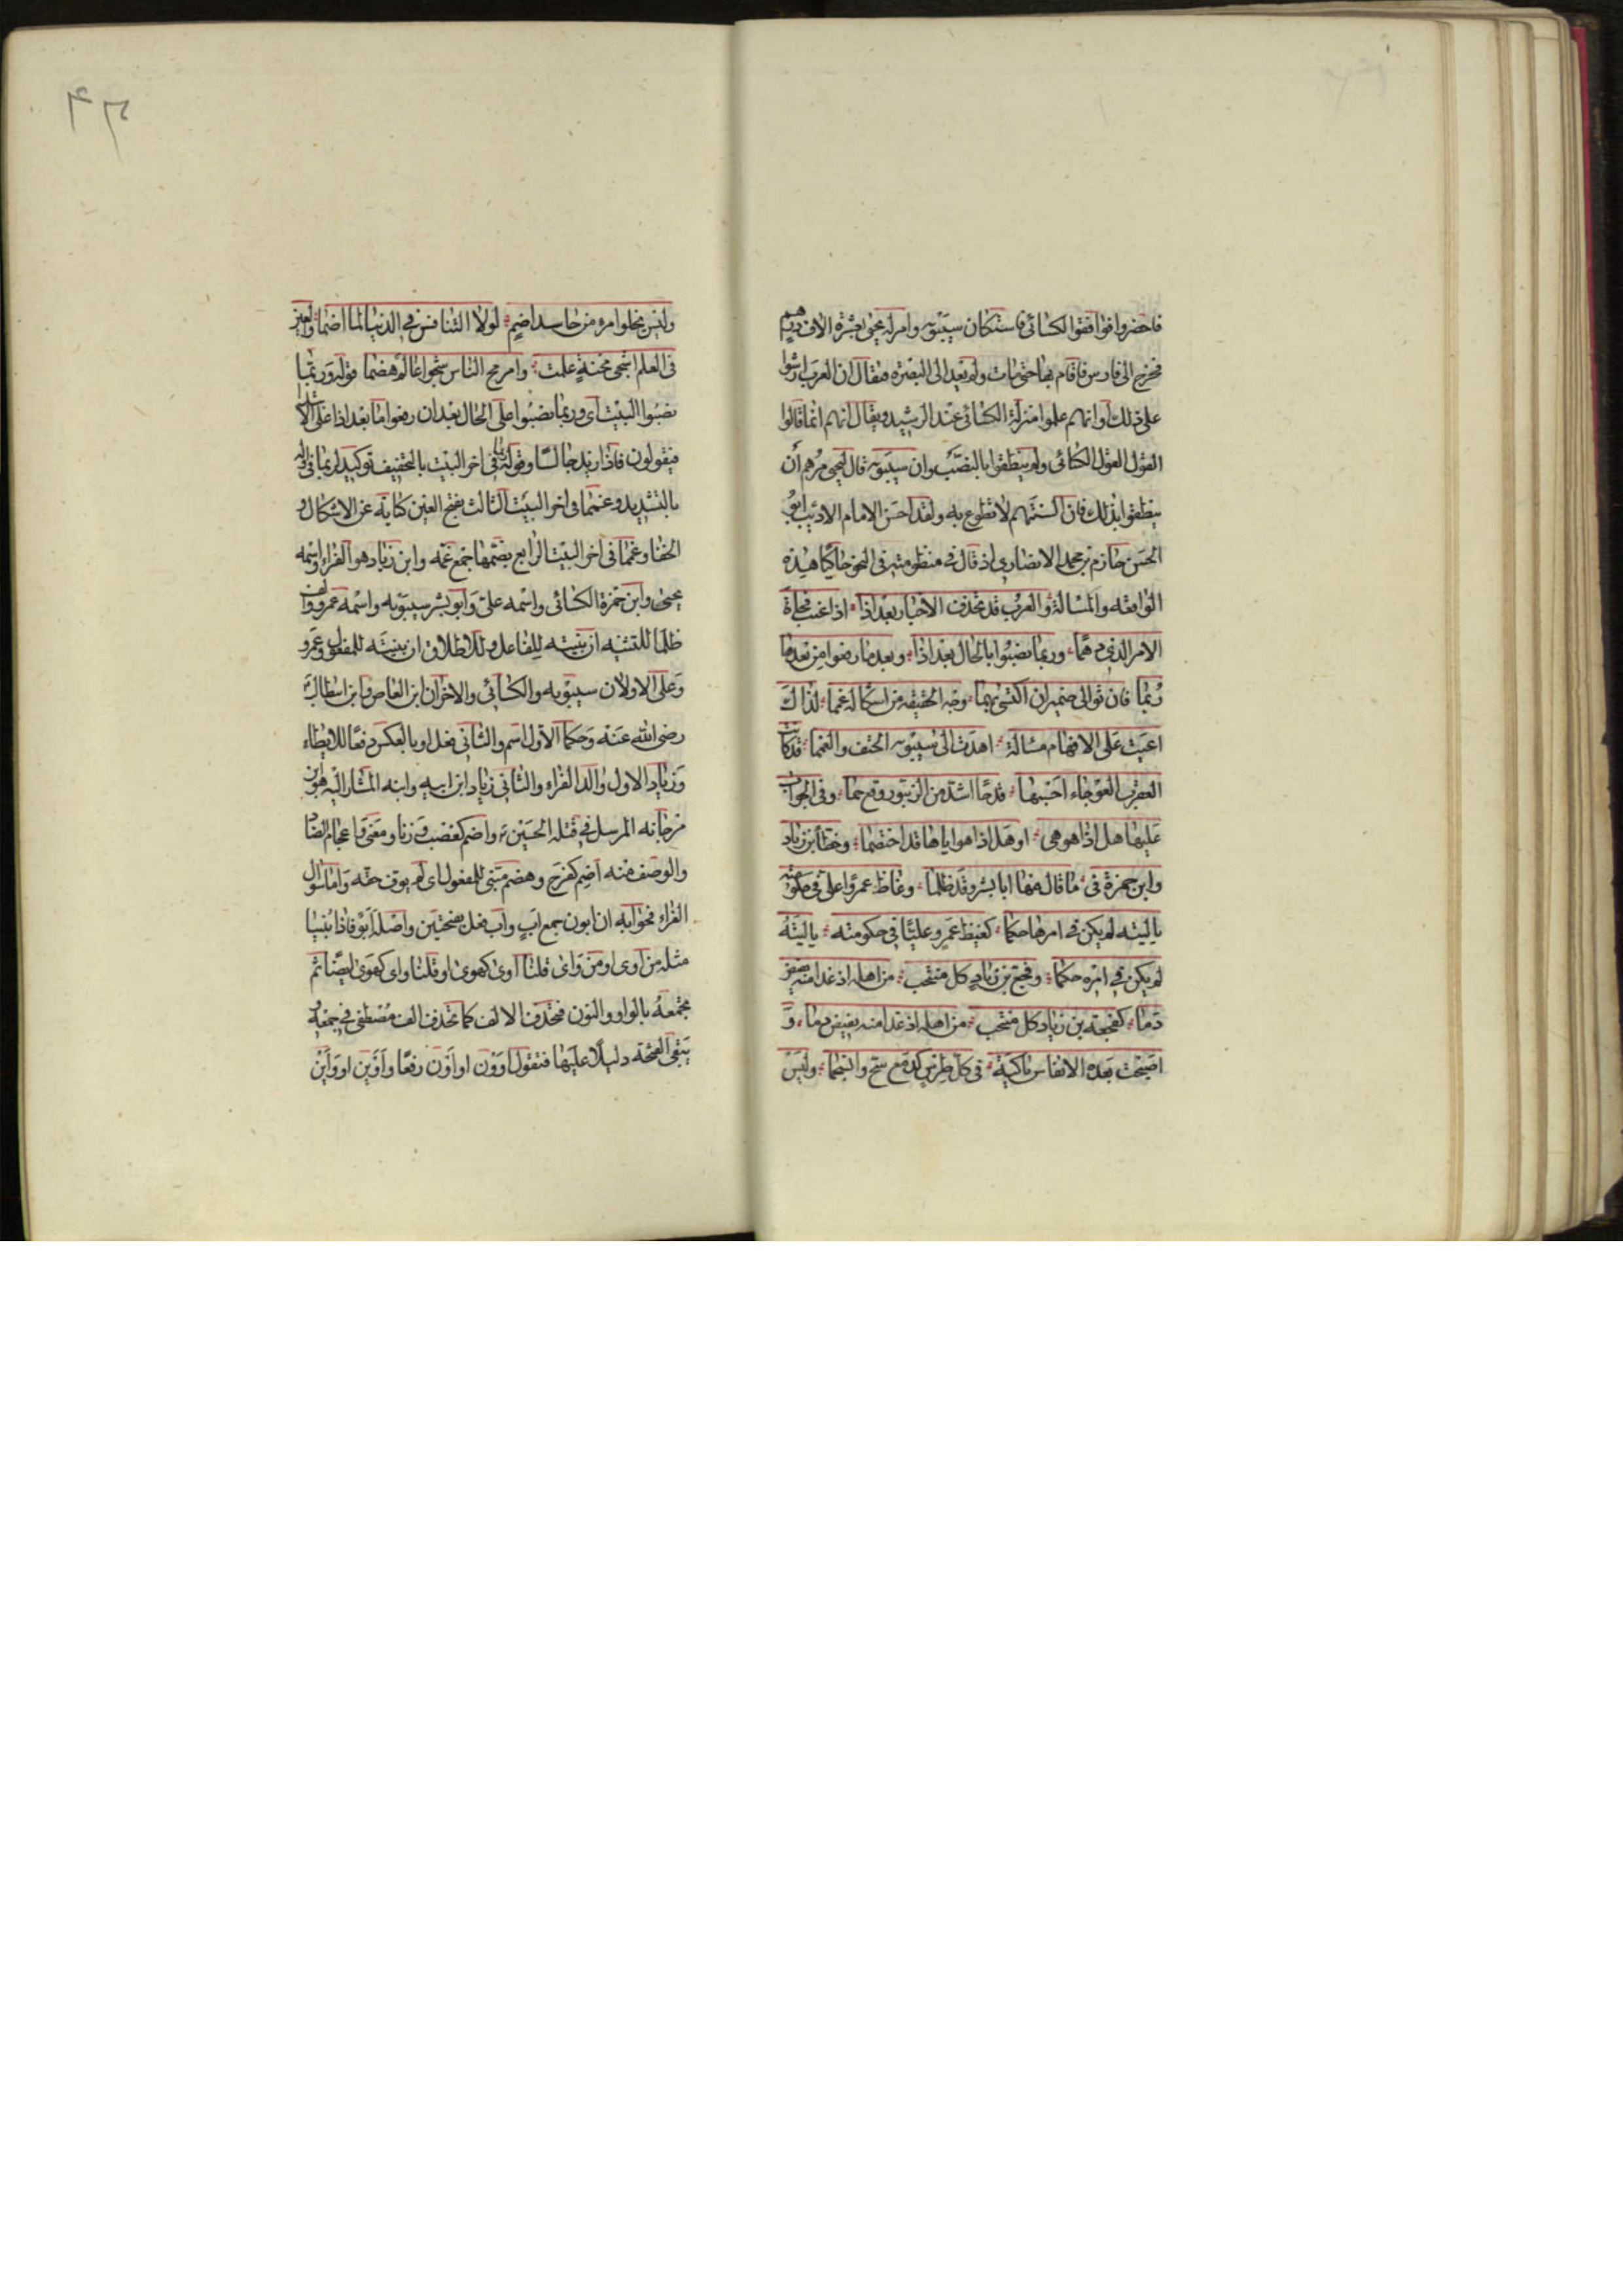 فاحضروا فوافقوا الكسائى فاستكان سيبويه وامر له يحيى بعشرة الاف درهم
فخرج الى فارس فاقام بها حتى مات ولم يعد الى البصرة فيقال ان العرب ارشوا
على ذلك او انهم علموا منزلة الكسائى عند الرشيد ويقال انهم انما قالوا
القول القول الكسائى ولم ينطقوا بالنصب وان سيبويه قال ليحيى مرهم أن
ينطقوا بذلك فان السنتهم لا تطوع به ولقد احسن الامام الاديب ابو
الحسن حازم بن محمد الانصارى اذ قال فى منظومته فى النحو حاكيا هذه
الواقعه والمسالة والعرب قد تحذف الاخبار بعد اذا اذا عنت فجاة
الامر الذى دهما وربما نصبوا بالحال بعد اذا وبعد ما رفعوا من بعدها
ربما فان توالى ضميران اكتسى بهما وجه الحقيقه من اشكاله غمما لذاك
اعيت على الافهام مسالة اهدت الى سيبويه الحتف والغمما قد كانت
العقرب العوجاء احسبها قدما اشد من الزنبور وقع حما وفى الجواب
عليها هل اذا هو هى او هل اذا هو اياها قد اختصما وخطأ بن زياد
وابن حمزة فى ما قال فيها ابا بشر وقد ظلما وغاظ عمروا على فى حكومته
يا ليته لم يكن فى امرها حكما كغيظ عمرو عليا فى حكومته يا ليته
لم يكن فى امره حكما وفجع بن زياد كل منتحب من اهله اذ غدا منه يفيض
دما كفجعة بن زياد كل منتحب من اهله اذ غدا منه يفيض دما و
اصبحت بعده الانفاس باكية فى كل طرس كدمع سح وانسجما وليس
وليس يخلو امرء من حاسد اضم لولا التنافس فى الدنيا لما اضما والغبن
فى العلم اشجى محنة علمت وامرح الناس شجوا عالم هضما قوله وربما
نصبوا البيت اى وربما نصبوا على الحال بعد ان رفعوا ما بعد اذا على الابتداء
فيقولون فاذا زيد جالسا وقوله ربما فى اخر البيت بالتخفيف توكيد لربما فى اوله
بالتشديد وغمما فى اخر البيت الثالث بفتح الغين كناية عن الاشكال و
الخفا وغمما فى اخر البيت الرابع بضمها جمع غمه وابن زياد هو الفراء واسمه
يحيى وابن حمزة الكسائى واسمه على وابو بشر سيبويه واسمه عمرو والف
ظلما للتثنيه ان بنيته للفاعل وللاطلاق ان بنيته للمفعول وعمرو
وعلى الاولان سيبويه والكسائى والاخران ابن العاص وابن ابى طالب
رضى الله عنه وحكما الاول اسم والثانى فعل او بالعكس دفعا للايطاء
وزياد الاول والد الفراء والثانى زياد ابن ابيه وابنه المشار اليه هو ابن
مرجانه المرسل فى قتلة الحسين واضم كغضب وزنا ومعنى واعجام الضاد
والوصف منه اضم كفرح وهضم مبنى للمفعول اى لم يوف حقه واما سؤال
الفراء فجوابه ان ابون جمع اب واب فعل بفتحتين واصله ابو فاذا بنينا
مثله من اوى او من واى قلنا اوى كهوى او قلنا واى كهوى ايضا ثم
تجمعه بالواو والنون فتحذف الالف كما تحذف الف مصطفى فى جمعه و
يبقى الفتحة دليلا عليها فتقول اوون او اون رفعا واوين او واين